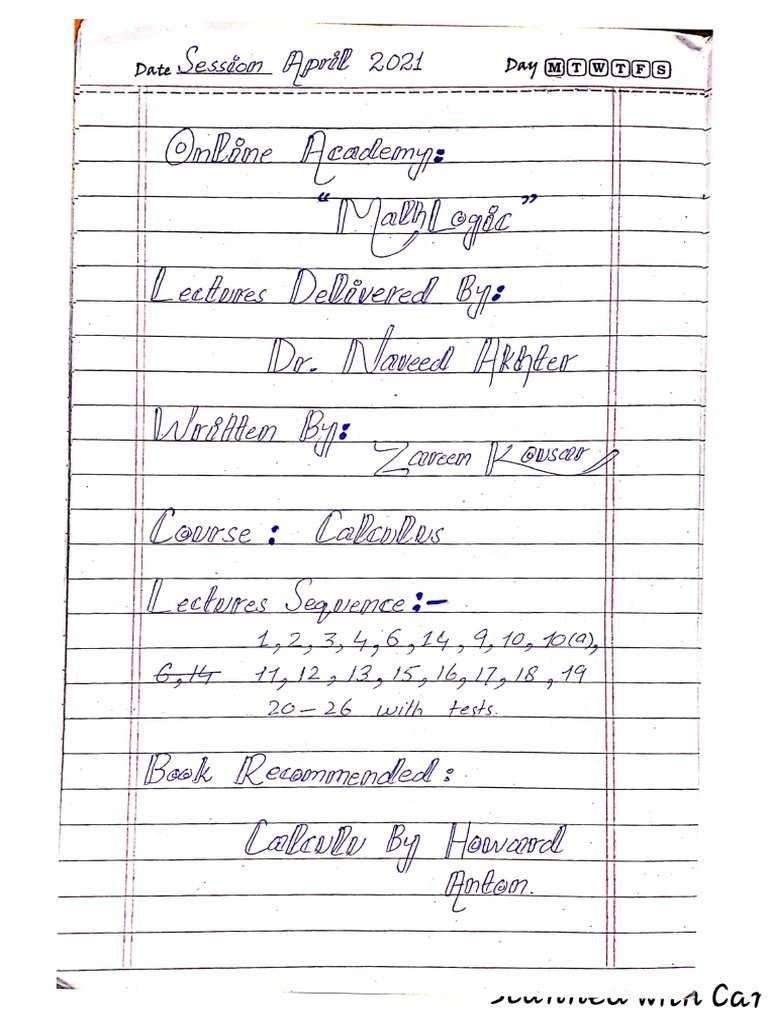 Date Session April 2021 Day M T W T F S
Online Academy:
"MathLogic"
Lectures Dellivered By:
Dr. Naveed Akhter
Written By:
Zareen Kousar
Course: Calculus
Lectures Sequence:-
1, 2, 3, 4, 6, 14, 9, 10, 10(a),
6, 14 11, 12, 13, 15, 16, 17, 18, 19
20 - 26 with tests.
Book Recommended:
Calculu By Howard
Anton.
Scanned with Car